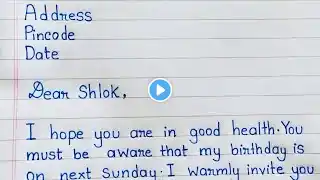 Address
Pincode
Date
Dear Shlok,
I hope you are in good health. You
must be aware that my birthday is
on next Sunday. I warmly invite you